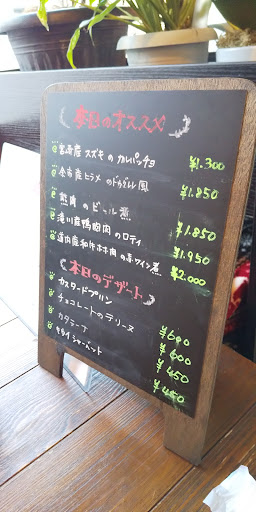 本日のオススメ
産 スズキ の カルパッチョ ¥1.300
余市産 ヒラメ の 風 ¥1.850
熊肉 の ビール煮 ¥1.850
滝川産鴨胸肉 の ロティ ¥1.950
道内産和牛ホホ肉 の 赤ワイン煮 ¥2.000
本日のデザート
カスタードプリン ¥600
チョコレートのテリーヌ ¥600
カタラーナ ¥450
シャーベット ¥450